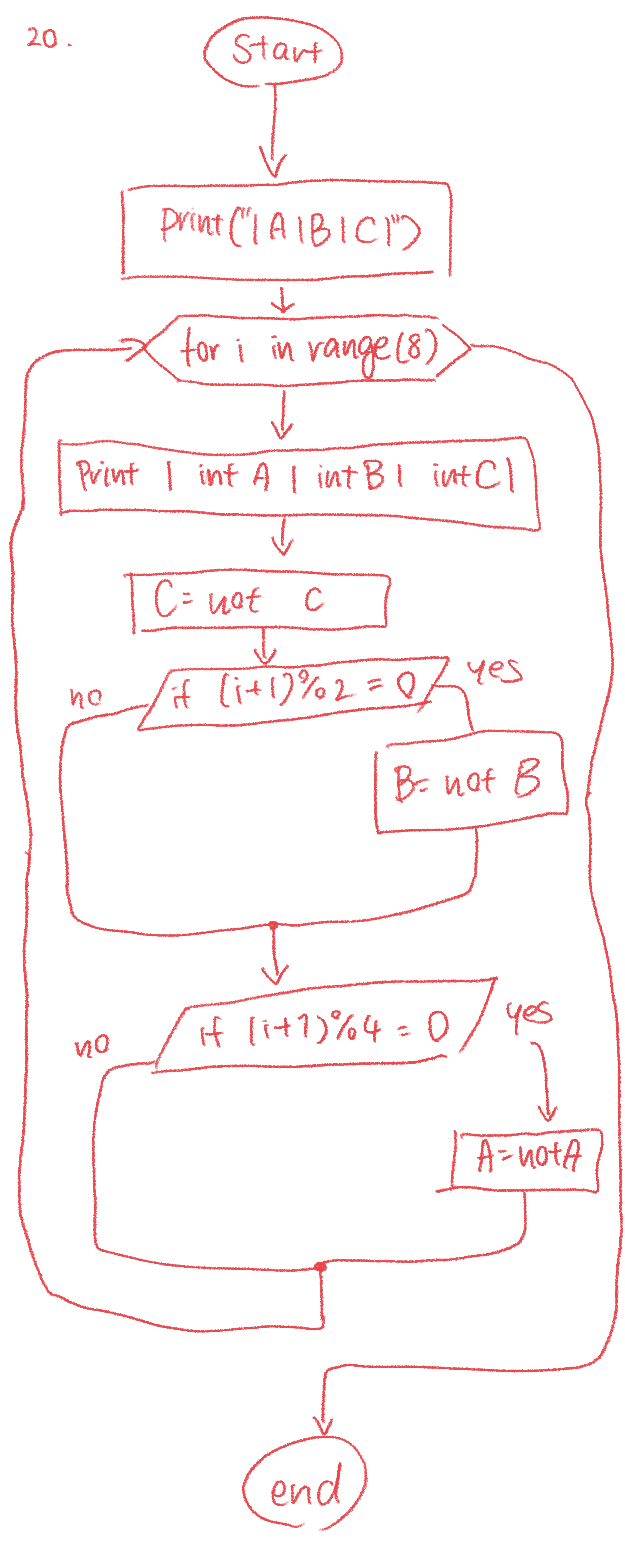 20.
Start
Print("|A|B|C|")
for i in range(8)
Print | int A | intB| intC|
C= not c
if (i+1)%2 = 0
no
yes
B= not B
if (i+1)%4 = 0
no
yes
A=notA
end